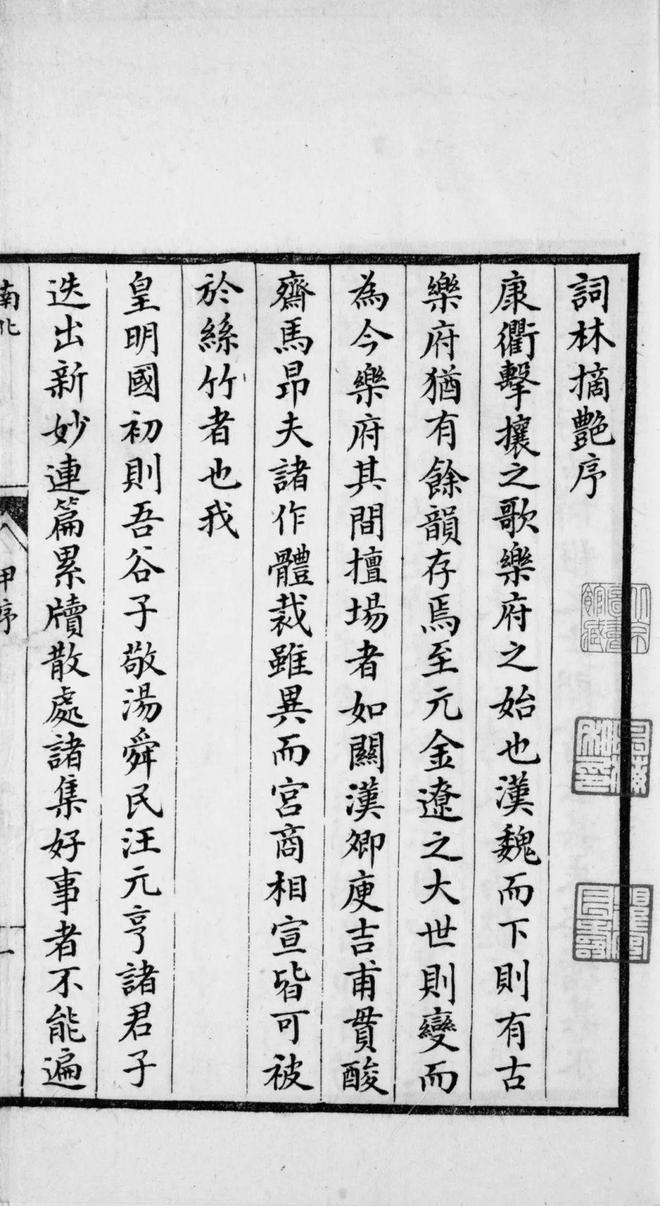 詞林摘艷序
康衢擊攘之歌樂府之始也漢魏而下則有古
樂府猶有餘韻存焉至元金遼之大世則變而
為今樂府其間擅場者如關漢卿庾吉甫貫酸
齋馬昂夫諸作體裁雖異而宮商相宣皆可被
於絲竹者也我
皇明國初則吾谷子敬湯舜民汪元亨諸君子
迭出新妙連篇累牘散處諸集好事者不能遍
南北
甲序
一